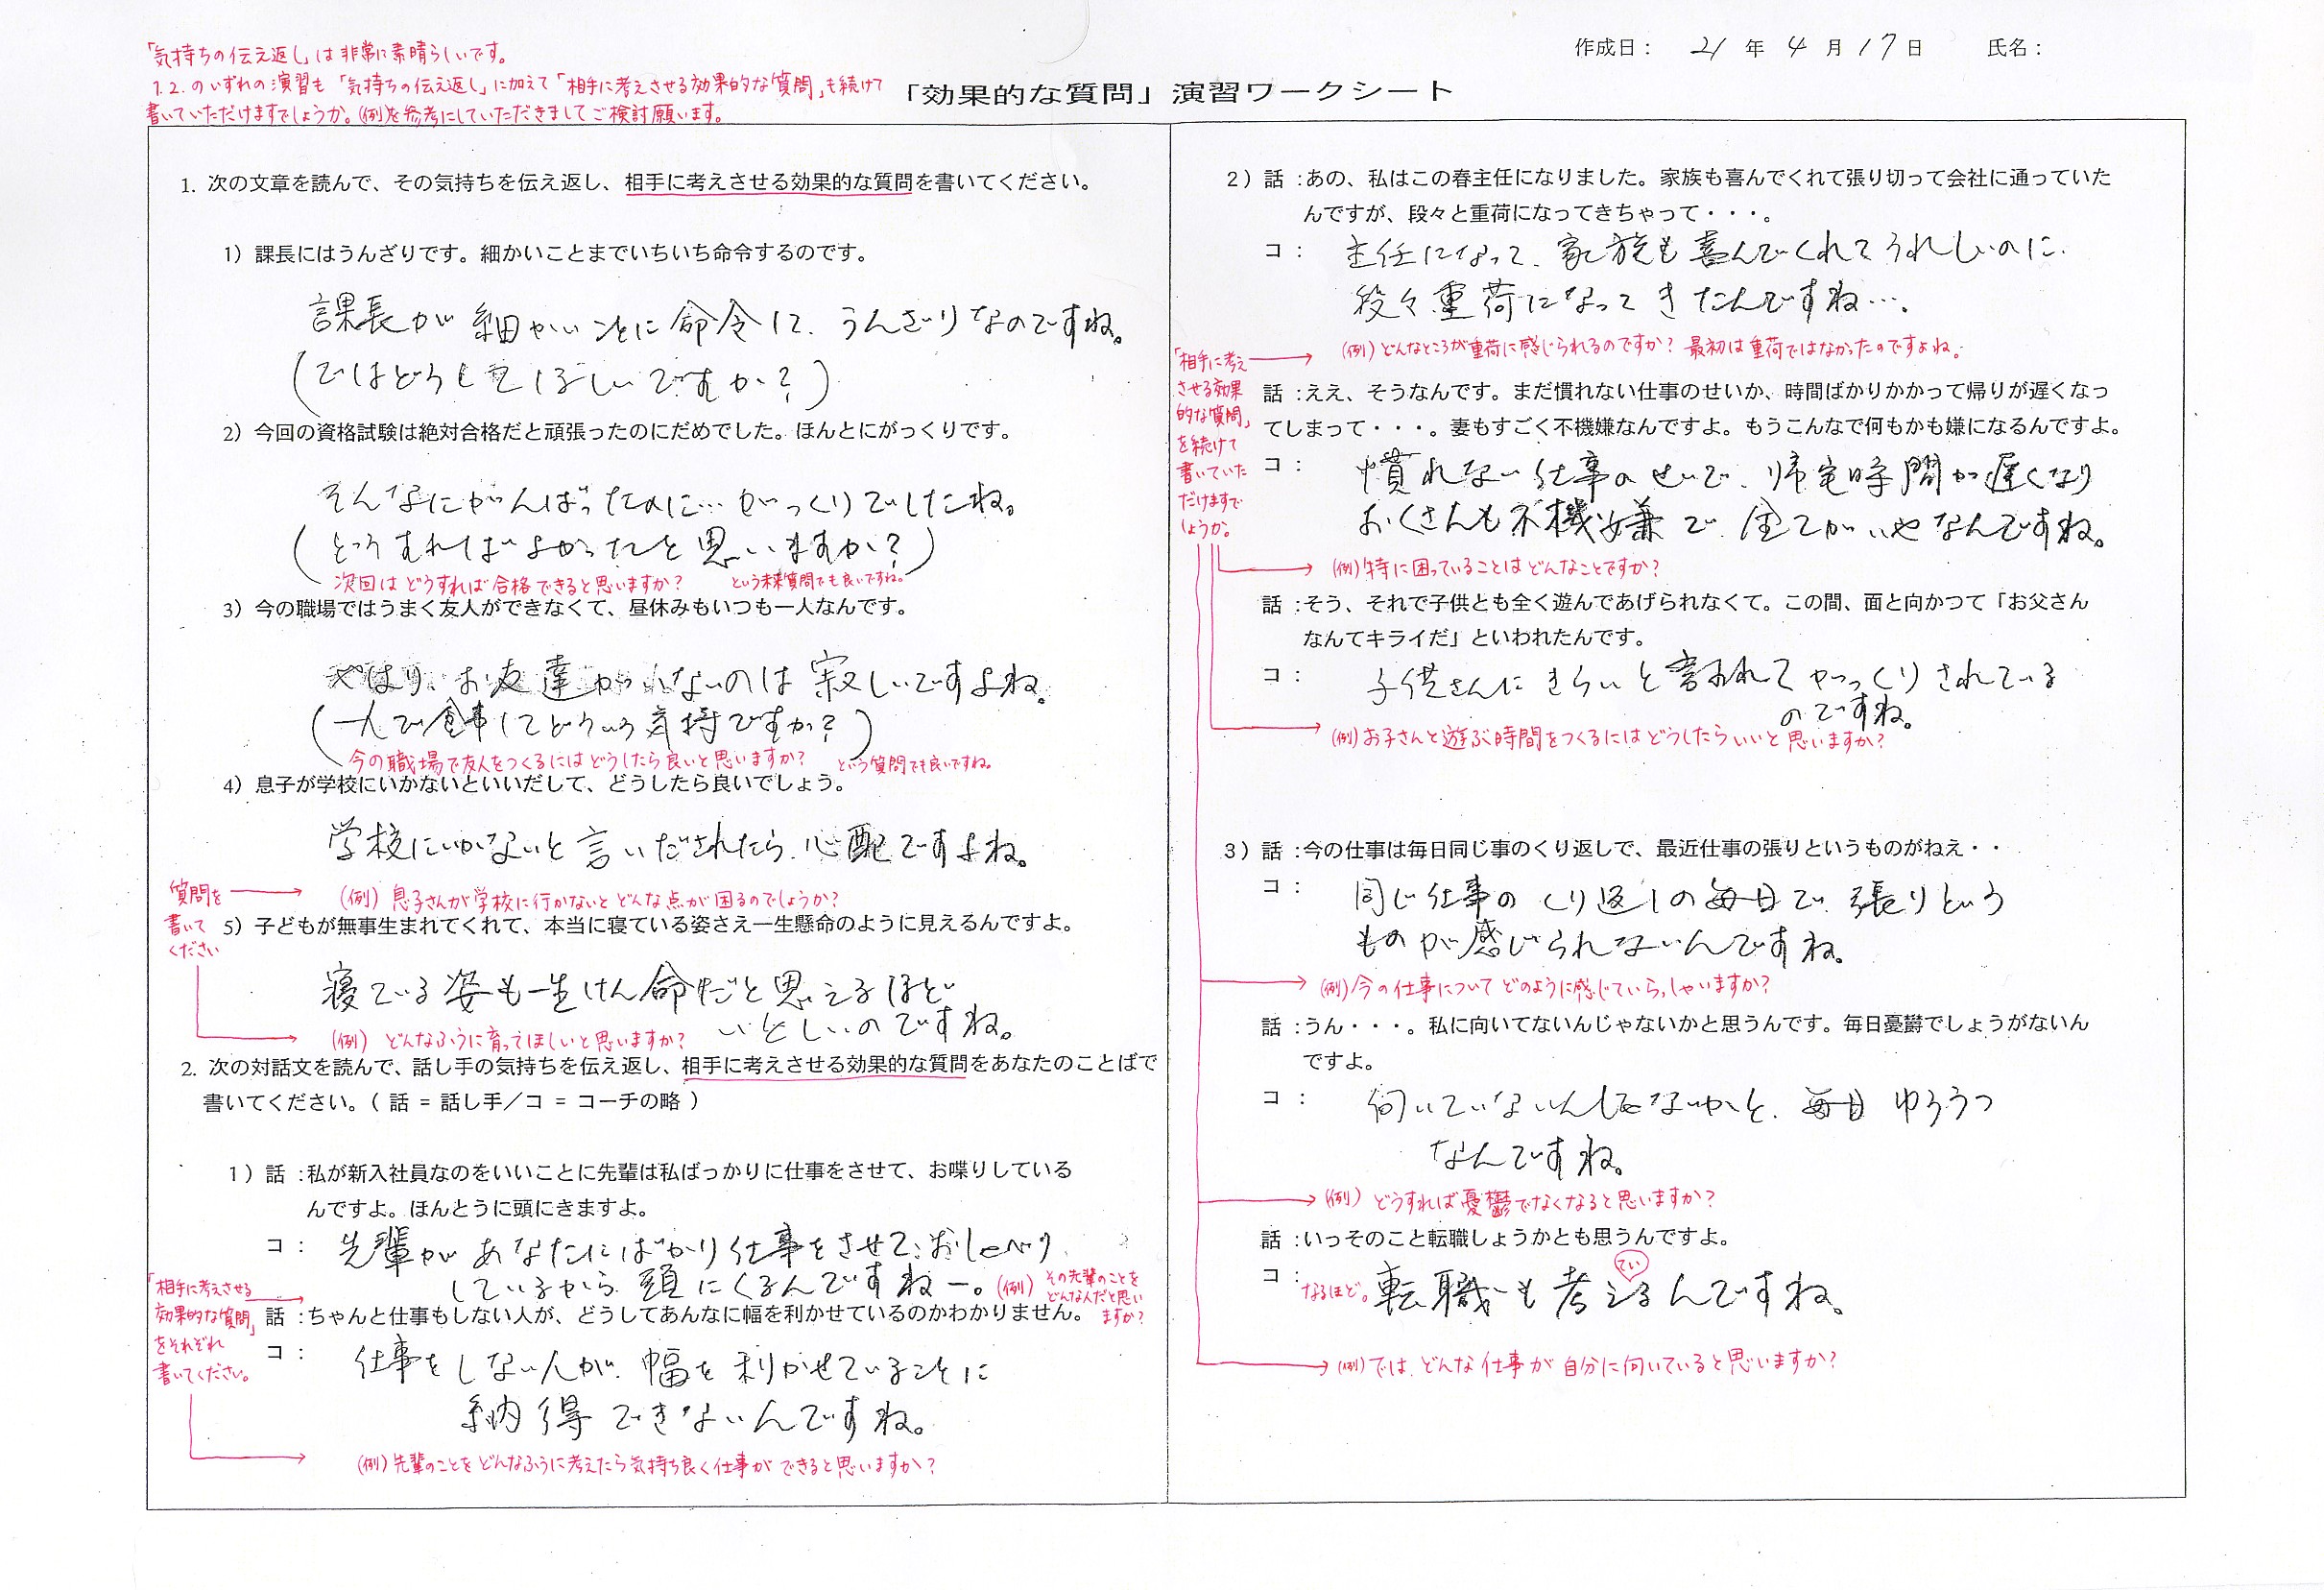 作成日： 21 年 4 月 17 日　氏名：
「気持ちの伝え返し」は非常に素晴らしいです。
1.2.のいずれの演習も「気持ちの伝え返し」に加えて「相手に考えさせる効果的な質問」も続けて
書いていただけますでしょうか。(例)を参考にしていただきましてご検討願います。
「効果的な質問」演習ワークシート
1. 次の文章を読んで、その気持ちを伝え返し、相手に考えさせる効果的な質問を書いてください。
1）課長にはうんざりです。細かいことまでいちいち命令するのです。
課長が細かいことに命令して、うんざりなのですね。
(ではどうしてほしいですか？)
2）今回の資格試験は絶対合格だと頑張ったのにだめでした。ほんとにがっくりです。
そんなにがんばったのに…がっくりでしたね。
(どうすればよかったと思いますか？)
次回はどうすれば合格できると思いますか？　という未来質問でも良いですね。
3）今の職場ではうまく友人ができなくて、昼休みもいつも一人なんです。
やはり、お友達がいないのは寂しいですよね。
(一人で食事してどういう気持ですか？)
今の職場で友人をつくるにはどうしたら良いと思いますか？　という質問でも良いですね。
4）息子が学校にいかないといいだして、どうしたら良いでしょう。
学校にいかないと言いだされたら、心配ですよね。
質問を
書いて
ください
(例) 息子さんが学校に行かないとどんな点が困るのでしょうか？
5）子どもが無事生まれてくれて、本当に寝ている姿さえ一生懸命のように見えるんですよ。
寝ている姿も一生けん命だと思えるほど
いとしいのですね。
(例) どんなふうに育ってほしいと思いますか？
2. 次の対話文を読んで、話し手の気持ちを伝え返し、相手に考えさせる効果的な質問をあなたのことばで
書いてください。（ 話 = 話し手／コ = コーチの略 ）
1）話 ：私が新入社員なのをいいことに先輩は私ばっかりに仕事をさせて、お喋りしている
んですよ。ほんとうに頭にきますよ。
コ ： 先輩があなたにばかり仕事をさせて、おしゃべり
しているから、頭にくるんですねー。
(例) その先輩のことを
どんな人だと思い
ますか？
「相手に考えさせる
効果的な質問」
をそれぞれ
書いてください。
話 ：ちゃんと仕事もしない人が、どうしてあんなに幅を利かせているのかわかりません。
コ ： 仕事をしない人が、幅を利かせていることに
納得できないんですね。
(例) 先輩のことをどんなふうに考えたら気持ち良く仕事ができると思いますか？
2）話 ：あの、私はこの春主任になりました。家族も喜んでくれて張り切って会社に通っていた
んですが、段々と重荷になってきちゃって・・・。
コ ： 主任になって、家族も喜んでくれてうれしいのに、
段々重荷になってきたんですね…。
(例) どんなところが重荷に感じられるのですか？ 最初は重荷ではなかったのですよね。
「相手に考え
させる効果
的な質問」
を続けて
書いていた
だけますで
しょうか。
話 ：ええ、そうなんです。まだ慣れない仕事のせいか、時間ばかりかかって帰りが遅くなっ
てしまって・・・。妻もすごく不機嫌なんですよ。もうこんなで何もかも嫌になるんですよ。
コ ： 慣れない仕事のせいで、帰宅時間が遅くなり
おくさんも不機嫌で、全てがいやなんですね。
(例) 特に困っていることはどんなことですか？
話 ：そう、それで子供とも全く遊んであげられなくて。この間、面と向かつて「お父さん
なんてキライだ」といわれたんです。
コ ： 子供さんにきらいと言われてがっくりされている
のですね。
(例) お子さんと遊ぶ時間をつくるにはどうしたらいいと思いますか？
3）話 ：今の仕事は毎日同じ事のくり返しで、最近仕事の張りというものがねえ・・
コ ： 同じ仕事のくり返しの毎日で、張りという
ものが感じられないんですね。
(例) 今の仕事についてどのように感じていらっしゃいますか？
話 ：うん・・・。私に向いてないんじゃないかと思うんです。毎日憂欝でしょうがないん
ですよ。
コ ： 向いていないんじゃないかと、毎日ゆううつ
なんですね。
(例) どうすれば憂鬱でなくなると思いますか？
話 ：いっそのこと転職しょうかとも思うんですよ。
てい
コ ： なるほど。転職も考えるんですね。
(例) では、どんな仕事が自分に向いていると思いますか？